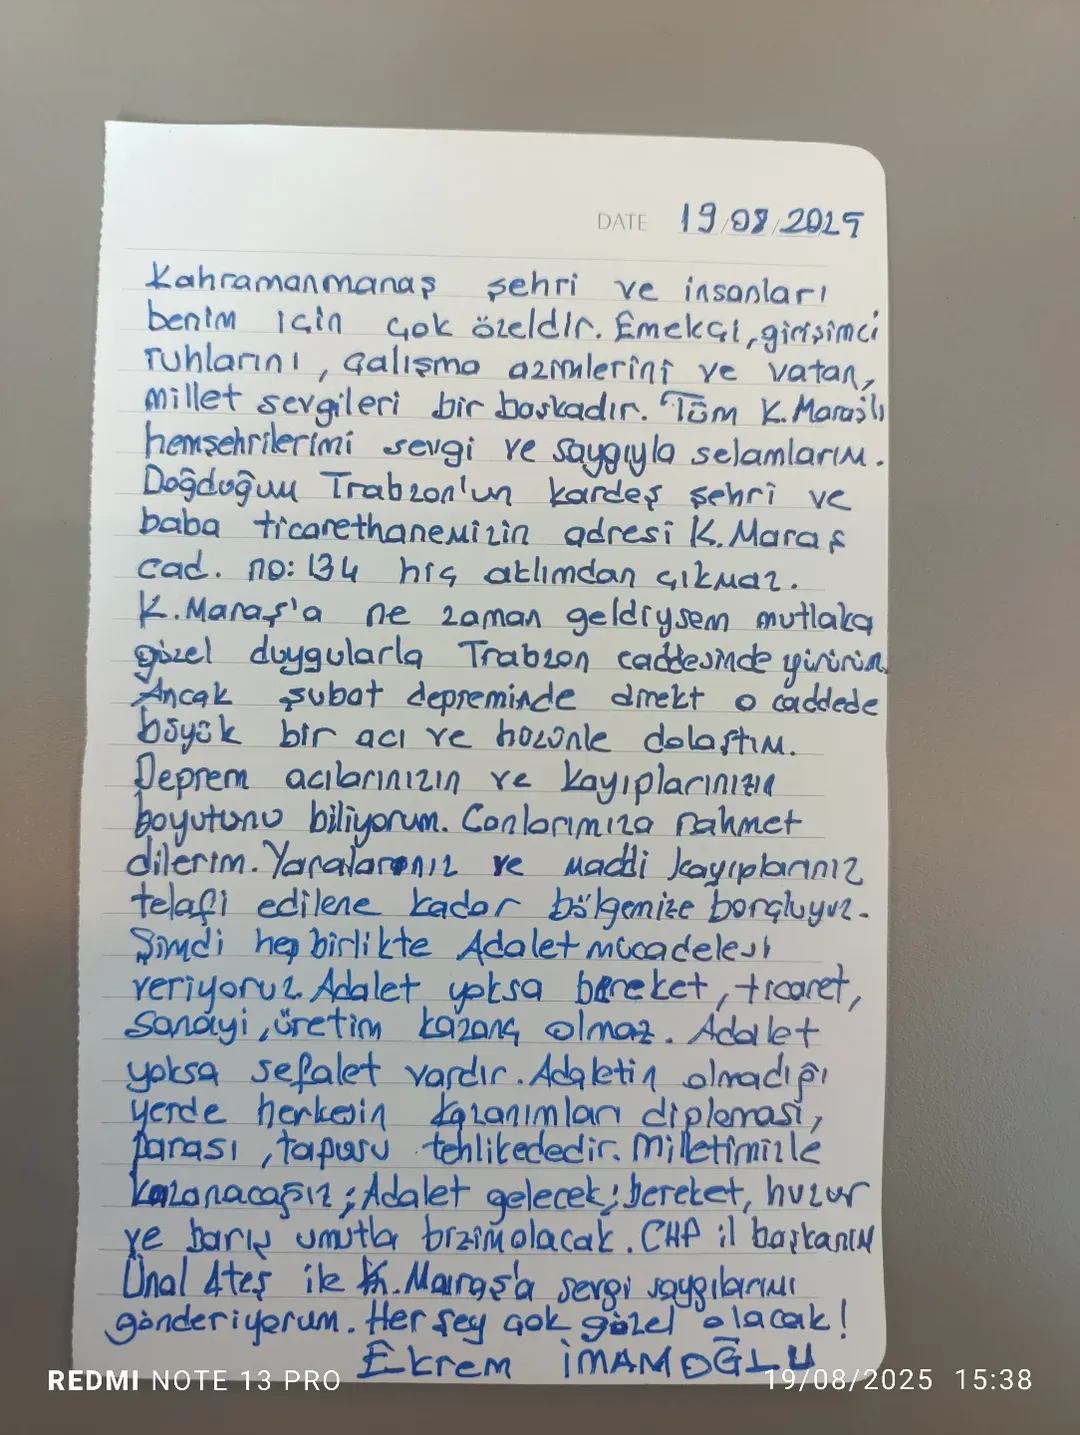 DATE 19/08/2025
Kahramanmaraş şehri ve insanları
benim için çok özeldir. Emekçi, girişimci
ruhlarını, çalışma azmilerini ve vatan,
millet sevgileri bir başkadır. Tüm K.Maraşlı
hemşehrilerimi sevgi ve saygıyla selamlarım.
Doğduğum Trabzon'un kardeş şehri ve
baba ticarethanemizin adresi K.Maraş
cad. no: 134 hiç aklımdan çıkmaz.
K.Maraş'a ne zaman geldiysem mutlaka
güzel duygularla Trabzon caddesinde yürürüm.
Ancak şubat depreminde direkt o caddede
büyük bir acı ve hüzünle dolaştım.
Deprem acılarınızın ve kayıplarınızın
boyutunu biliyorum. Canlarımıza rahmet
dilerim. Yaralarınız ve maddi kayıplarınız
telafi edilene kadar bölgemize borçluyuz.
Şimdi hep birlikte Adalet mücadelesi
veriyoruz. Adalet yoksa bereket, ticaret,
sanayi, üretim kazanç olmaz. Adalet
yoksa sefalet vardır. Adaletin olmadığı
yerde herkesin kazanımları diploması,
parası, tapusu tehlikededir. Milletimizle
kazanacağız; Adalet gelecek; bereket, huzur
ve barış umutla bizim olacak. CHP il başkanım
Ünal Ateş ile K.Maraş'a sevgi saygılarımı
gönderiyorum. Her şey çok güzel olacak!
Ekrem İMAMOĞLU
REDMI NOTE 13 PRO 19/08/2025 15:38